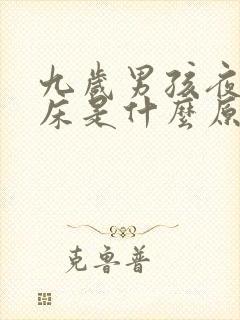 九歲男孩夜
床是什麼原
克鲁普